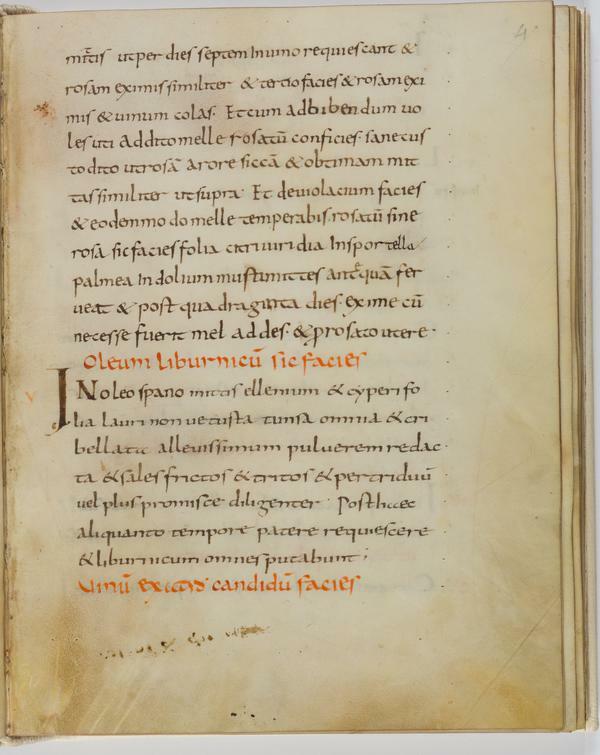 4
mittis ut per dies septem In uino requiescant &
rosam eximis similiter & tertio facies & rosam exi
mis & uinum colas. Et cum ad bibendum uo
les uti addito melle rosatū conficies. sane cus
todito ut rosā a rore siccā & obtimam mit
tas similiter ut supra. Et de uiolacium facies
& eodem modo melle temperabis. rosatū sine
rosa sic facies folia citri uiridia In sportella
palmea In dolium musti mittes antequā fer
ueat & post quadraginta dies. exime cū
necesse fuerit mel addes. & pro rosato utere.
Oleum liburnicū sic facies
INoleo spano mittis ellenium & cyperi fo
lia lauri non uetusta tunsa omnia & cri
bellata alleuissimum puluerem redac
ta & sales frictos & tritos & per triduū
uel plus promisce diligenter. Post haec
aliquanto tempore patere requiescere
& liburnicum omnes putabunt;
Uinū ex atro candidū facies